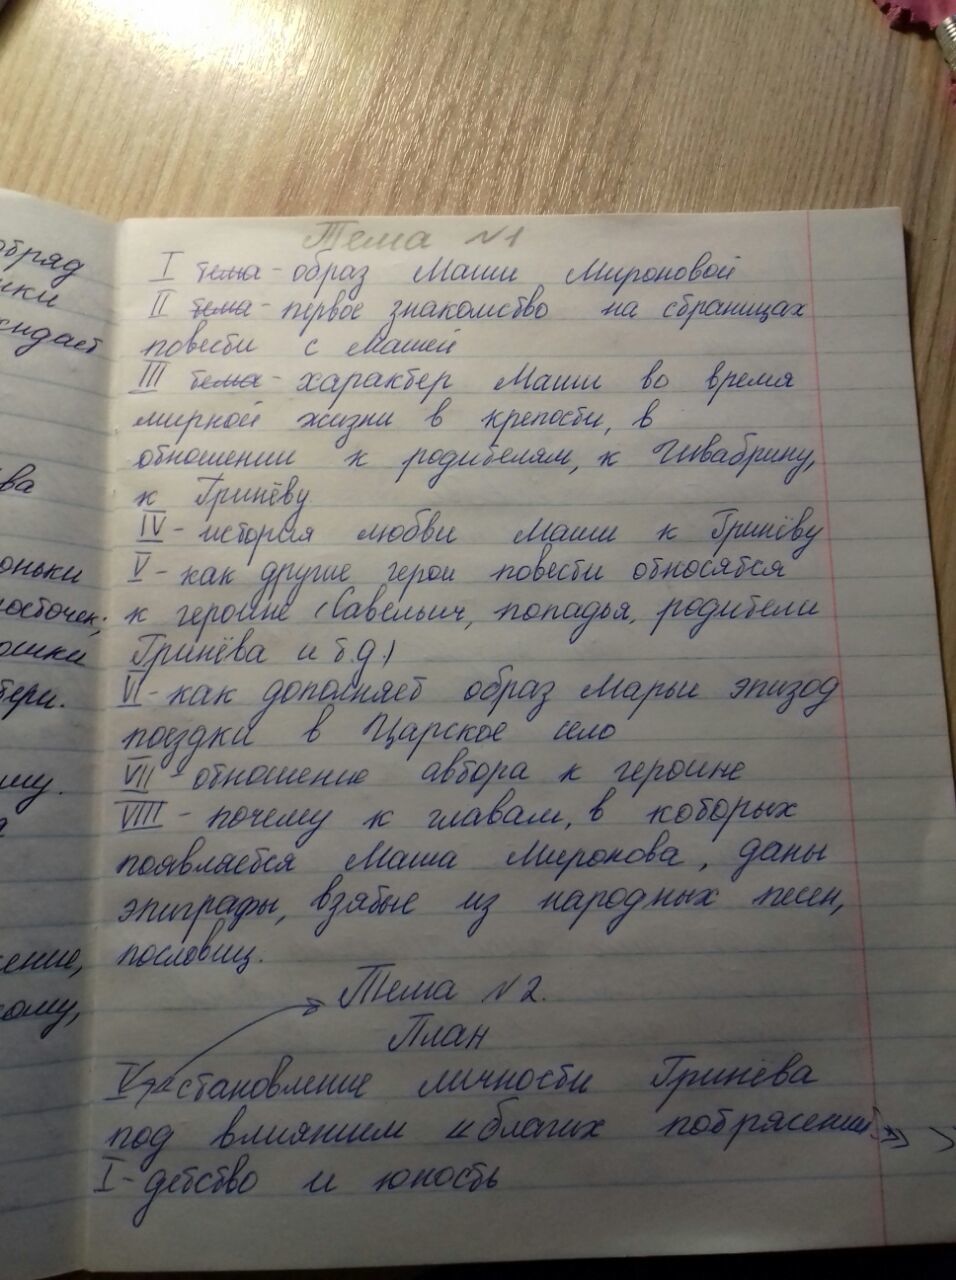 обряд
ики
жидает
ва
оньки
осточек;
ошки
тери.
ому.
ение,
ому,
Тема №1
I тема - образ Маши Мироновой
II тема - первое знакомство на страницах
повести с Машей
III тема - характер Маши во время
мирной жизни в крепости, в
отношении к родителям, к Швабрину,
к Гринёву
IV - история любви Маши к Гринёву
V - как другие герои повести относятся
к героине (Савельич, попадья, родители
Гринёва и т.д.)
VI - как дополняет образ Марьи эпизод
поездки в Царское село
VII - отношение автора к героине
VIII - почему к главам, в которых
появляется Маша Миронова, даны
эпиграфы, взятые из народных песен,
пословиц.
Тема №2.
План
становление личности Гринёва
под влиянием потрясений
I - детство и юность